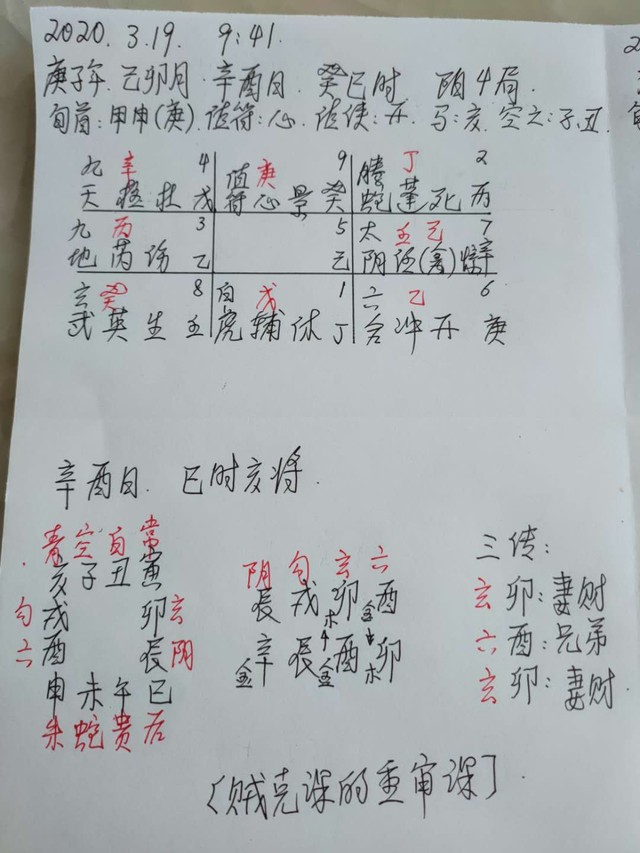 2020. 3.19. 9:41.
庚子年. 己卯月. 辛酉日. 癸巳时 阳4局.
旬首: 甲申(庚). 值符: 心. 值使: 开. 马: 亥. 空亡: 子丑.
九 辛 4 值 庚 9 螣 丁 2
天 柱 杜 戊 符 心 景 癸 蛇 蓬 死 丙
九 丙 3 5 太 壬 己 7
地 芮 伤 乙 己 阴 任(禽)惊 辛
玄 癸 8 白 戊 1 六 乙 6
武 英 生 壬 虎 辅 休 丁 合 冲 开 庚
辛酉日. 巳时亥将.
青 空 白 常
亥 子 丑 寅
勾 戌 卯 玄
六 酉 辰 阴
申 未 午 巳
朱 蛇 贵 后
阴 勾 玄 六
辰 戌 卯 酉
木 金
辛 辰 酉 卯
金 金 木
三传:
玄 卯: 妻财
六 酉: 兄弟
玄 卯: 妻财
[贼克课的重审课].